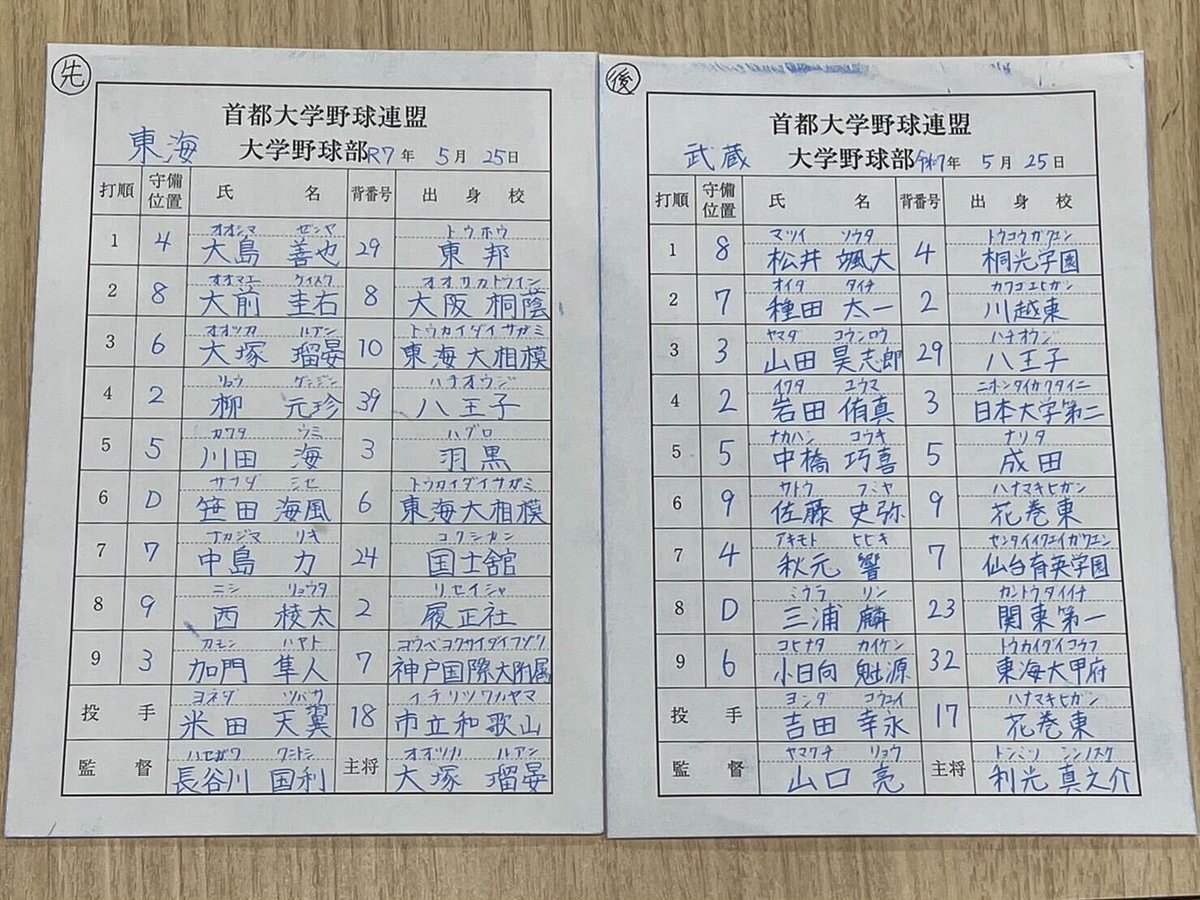 先
首都大学野球連盟
東海 大学野球部 R7年 5月 25日
打順 守備位置 氏名 背番号 出身校
オオシマ ゼンヤ トウホウ
1 4 大島 善也 29 東邦
オオマエ ケイスケ オオサカトウイン
2 8 大前 圭右 8 大阪桐蔭
オオツカ ルアン トウカイダイサガミ
3 6 大塚 瑠晏 10 東海大相模
リュウ ゲンジン ハチオウジ
4 2 柳 元珍 39 八王子
カワタ ウミ ハグロ
5 5 川田 海 3 羽黒
ササダ ミセ トウカイダイサガミ
6 D 笹田 海風 6 東海大相模
ナカジマ リキ コクシカン
7 7 中島 力 24 国士舘
ニシ リョウタ リセイシャ
8 9 西 稜太 2 履正社
カモン ハヤト コウベコクサイダイフゾク
9 3 加門 隼人 7 神戸国際大附属
ヨネダ ツバサ イチリツワカヤマ
投手 米田 天翼 18 市立和歌山
ハセガワ クニトシ オオツカ ルアン
監督 長谷川 国利 主将 大塚 瑠晏
後
首都大学野球連盟
武蔵 大学野球部 令和7年 5月 25日
打順 守備位置 氏名 背番号 出身校
マツイ ソウタ トウコウガクエン
1 8 松井 颯大 4 桐光学園
オイタ タイチ カワゴエヒガシ
2 7 種田 太一 2 川越東
ヤマダ コウシロウ ハチオウジ
3 3 山田 昊志郎 29 八王子
イワタ ユウマ ニホンダイガクダイニ
4 2 岩田 侑真 3 日本大学第二
ナカハシ コウキ ナリタ
5 5 中橋 巧喜 5 成田
サトウ フミヤ ハナマキヒガシ
6 9 佐藤 史弥 9 花巻東
アキモト ヒビキ センダイイクエイガクエン
7 4 秋元 響 7 仙台育英学園
ミウラ リン カントウダイイチ
8 D 三浦 麟 23 関東第一
コヒナタ カイゲン トウカイダイコウフ
9 6 小日向 魁源 32 東海大甲府
ヨシダ コウエイ ハナマキヒガシ
投手 吉田 幸永 17 花巻東
ヤマグチ リョウ トシミツ シンノスケ
監督 山口 亮 主将 利光 真之介